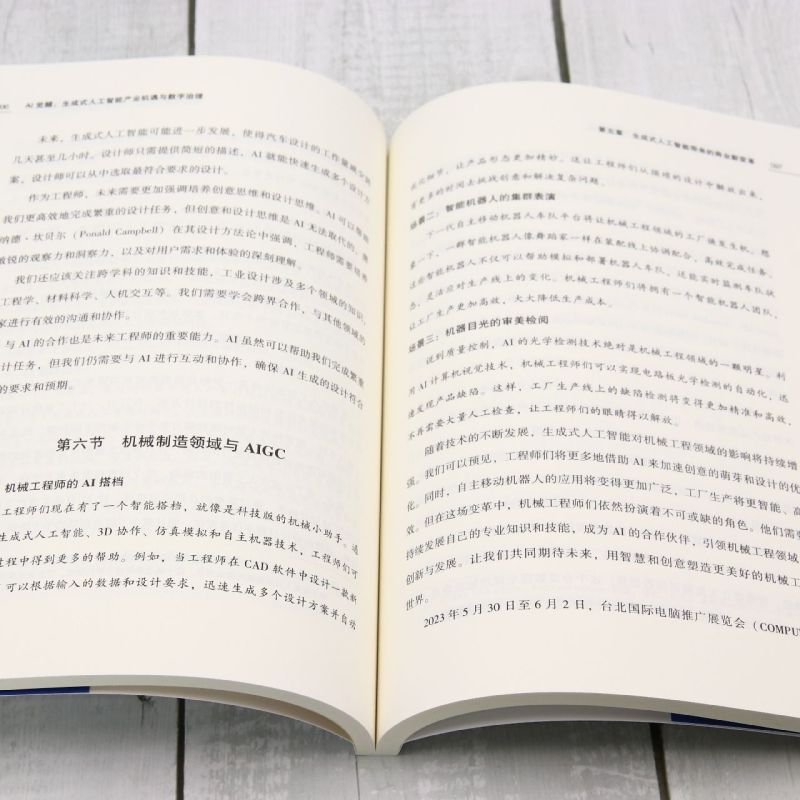 AI觉醒：生成式人工智能产业机遇与数字治理
未来，生成式人工智能可能进一步发展，使得汽车设计的工作量减少到
几天甚至几小时。设计师只需提供简短的描述，AI就能快速生成多个设计方
案，设计师可以从中选取最符合要求的设计。
作为工程师，未来需要更加强调培养创意思维和设计思维。AI可以帮助
我们更高效地完成繁重的设计任务，但创意和设计思维是AI无法取代的。唐
纳德·坎贝尔（Donald Campbell）在其设计方法论中强调，工程师需要培养
敏锐的观察力和洞察力，以及对用户需求和体验的深刻理解。
我们还应该关注跨学科的知识和技能，工业设计涉及多个领域的知识，
工程学、材料科学、人机交互等。我们需要学会跨界合作，与其他领域的
家进行有效的沟通和协作。
与AI的合作也是未来工程师的重要能力。AI虽然可以帮助我们完成繁重
计任务，但我们仍需要与AI进行互动和协作，确保AI生成的设计符合
的要求和预期。
第六节 机械制造领域与AIGC
机械工程师的AI搭档
工程师们现在有了一个智能搭档，就像是科技版的机械小助手。通
生成式人工智能、3D协作、仿真模拟和自主机器技术，工程师们可
过程中得到更多的帮助。例如，当工程师在CAD软件中设计一款新
可以根据输入的数据和设计要求，迅速生成多个设计方案并自动
第五章 生成式人工智能带来的商业新变革
优化细节，让产品形态更加精妙。这让工程师们从烦琐的设计中解放出来，
有更多的时间去挑战创意和解决复杂问题。
场景二：智能机器人的集群表演
下一代自主移动机器人车队平台将让机械工程领域的工厂焕发生机。想
象一下，一群智能机器人像舞蹈家一样在装配线上协调配合，高效完成任务。
这些智能机器人不仅可以帮助模拟和部署机器人车队，还能实时监测车队状
态，灵活应对生产线上的变化。机械工程师们将拥有一个智能机器人团队，
让工厂生产更加高效，大大降低生产成本。
场景三：机器目光的审美检阅
说到质量控制，AI的光学检测技术绝对是机械工程领域的一颗明星。利
用AI计算机视觉技术，机械工程师们可以实现电路板光学检测的自动化，迅
速发现产品缺陷。这样，工厂生产线上的缺陷检测将变得更加精准和高效，
不再需要大量人工检查，让工程师们的眼睛得以解放。
随着技术的不断发展，生成式人工智能对机械工程领域的影响将持续增
强。我们可以预见，工程师们将更多地借助AI来加速创意的萌芽和设计的优
化。同时，自主移动机器人的应用将变得更加广泛，工厂生产将更智能、高
效。但在这场变革中，机械工程师们依然扮演着不可或缺的角色。他们需要
持续发展自己的专业知识和技能，成为AI的合作伙伴，引领机械工程领域
创新与发展。让我们共同期待未来，用智慧和创意塑造更美好的机械工
世界。
2023年5月30日至6月2日，台北国际电脑推广展览会（COMPU